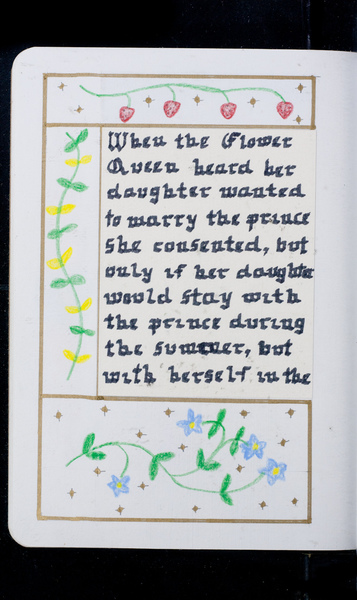 When the Flower
Queen heard her
daughter wanted
to marry the prince
she consented, but
only if her daughter
would stay with
the prince during
the summer, but
with herself in the